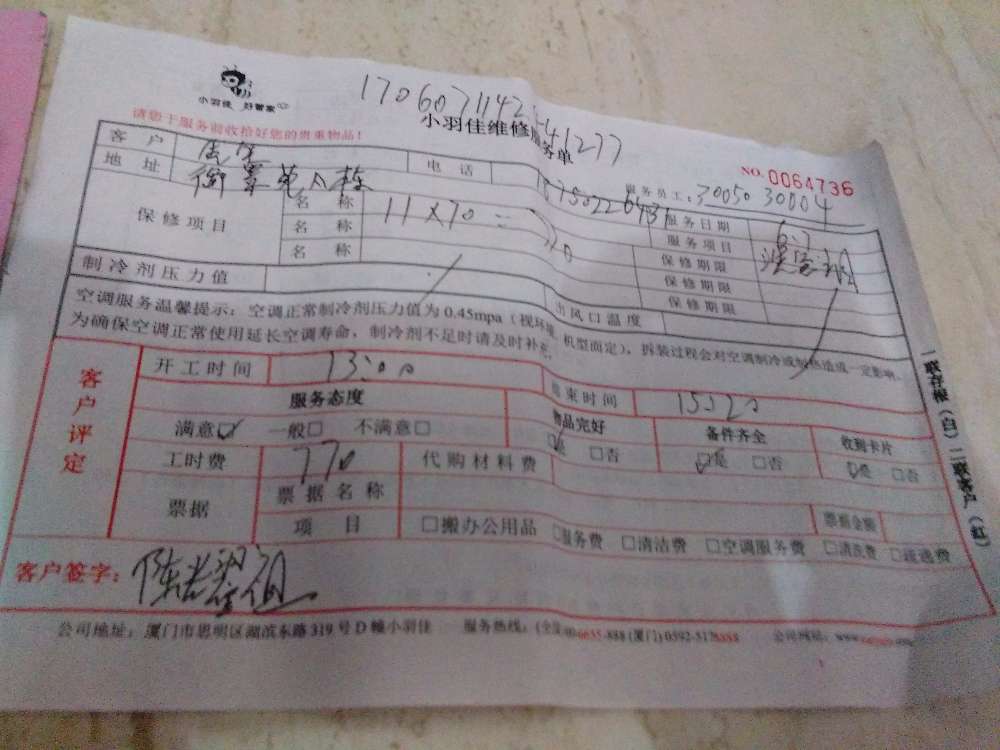 小羽佳 好管家
1706071142 -41277
请您于服务前收拾好您的贵重物品！
小羽佳维修服务单
NO. 0064736
服务员工：30050 30004
客户 电话 服务日期 6.7
地址
保修项目 名称 11×70= 服务项目
名称 保修期限
名称 保修期限
保修期限
制冷剂压力值 出风口温度
空调服务温馨提示：空调正常制冷剂压力值为0.45mpa（视环境、机型而定），拆装过程会对空调制冷或制热造成一定影响。
为确保空调正常使用延长空调寿命，制冷剂不足时请及时补充。
客户评定
开工时间 13:00 结束时间 15:20
服务态度 物品完好 备件齐全 收到卡片
满意☑ 一般□ 不满意□ ☑是 □否 ☑是 □否 ☑是 □否
工时费 770 代购材料费
票据 票据名称 票据金额
项目 □搬办公用品 □服务费 □清洁费 □空调服务费 □清洗费 □疏通费
客户签字：
公司地址：厦门市思明区湖滨东路319号D幢小羽佳 服务热线：(全国) -888 (厦门) 0592-5178888 公司网站：www.
一联存根（白）二联客户（红）